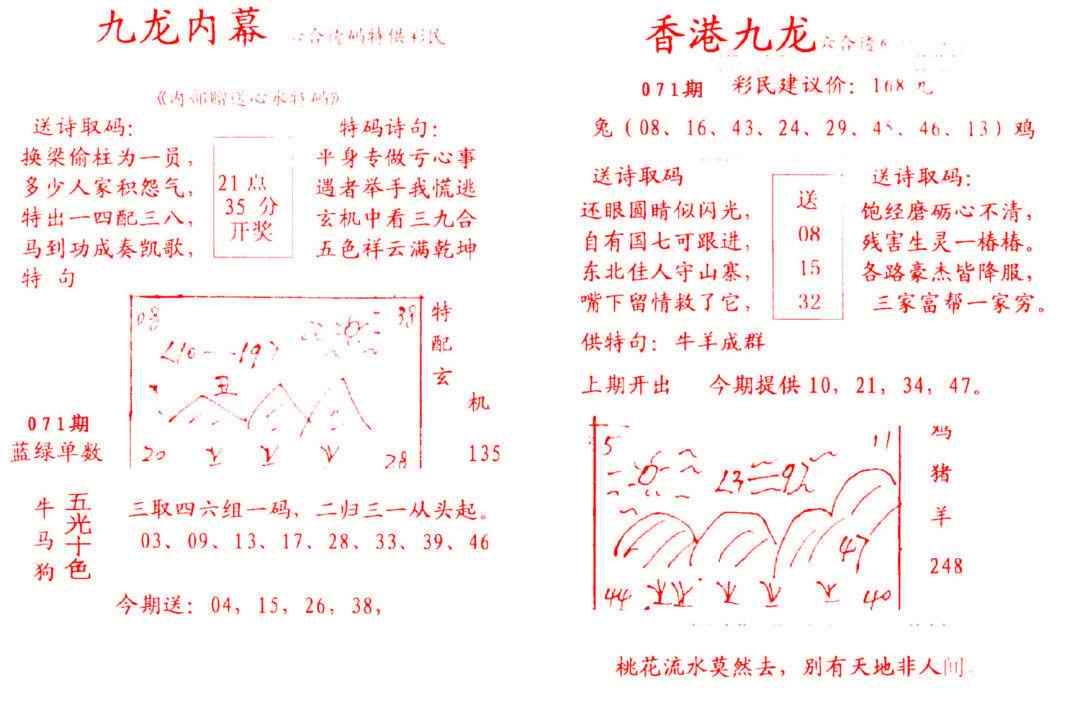 九龙内幕 六合透码特供彩民
《内部赠送心水特码》
送诗取码:
换梁偷柱为一员，
多少人家积怨气，
特出一四配三八，
马到功成奏凯歌，
特 句
21 点
35 分
开奖
特码诗句:
半身专做亏心事
遇者举手我慌逃
玄机中看三九合
五色祥云满乾坤
08
38
丑
20
28
特
配
玄
机
135
071期
蓝绿单数
牛
马
狗
五光十色
三取四六组一码，二归三一从头起。
03、09、13、17、28、33、39、46
今期送: 04, 15, 26, 38,
香港九龙
071期 彩民建议价: 168 元
兔（08、16、43、24、29、45、46、13）鸡
送诗取码
还眼圆睛似闪光，
自有国七可跟进，
东北佳人守山寨，
嘴下留情救了它，
送
08
15
32
送诗取码:
饱经磨砺心不清，
残害生灵一椿椿。
各路豪杰皆降服，
三家富帮一家穷。
供特句: 牛羊成群
上期开出 今期提供 10, 21, 34, 47。
5
11
47
44
40
鸡
猪
羊
248
桃花流水莫然去，别有天地非人间。